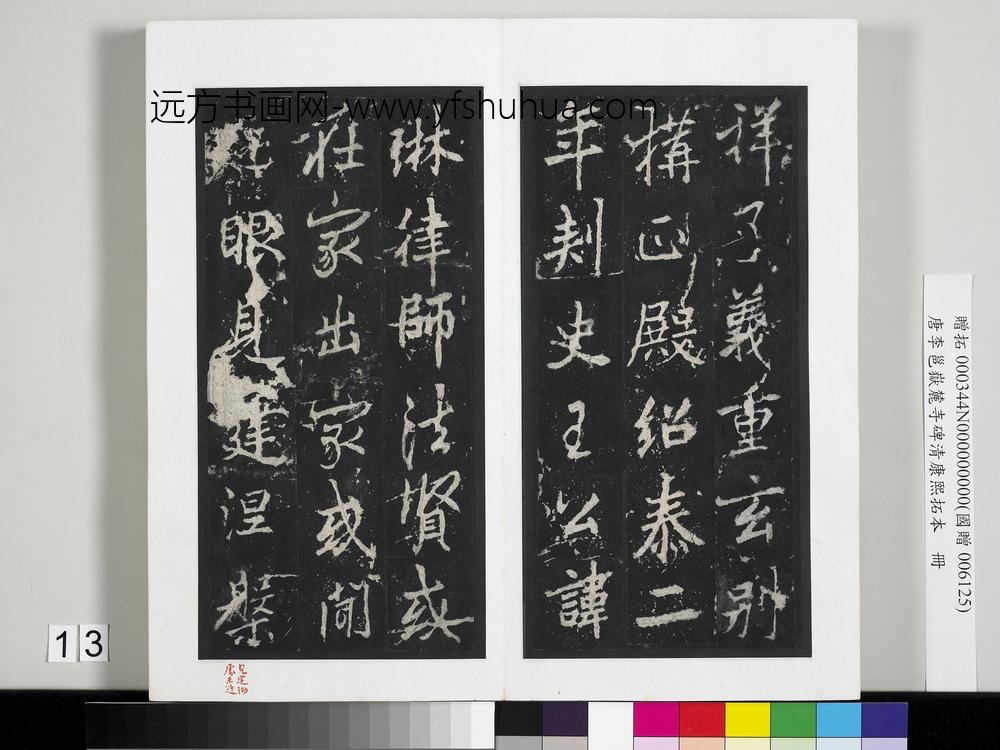 远方书画网-www.yfshuhua.com
祥子義重玄別
構正殿紹泰二
年刾史王公諱
琳律師法賢或
在家出家或聞
眼見建涅槃
贈拓 000344N000000000(國贈 006125)
唐李邕嶽麓寺碑清康熙拓本 冊
13